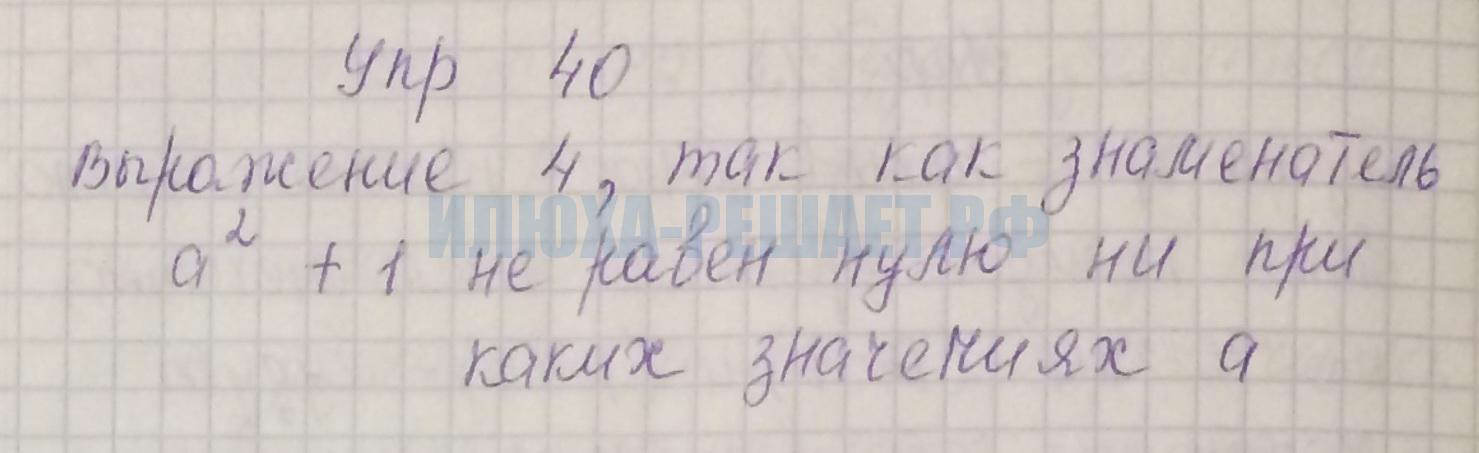 Упр 40
выражение 4, так как знаменатель
ИЛЮХА-РЕШАЕТ.РФ
a² + 1 не равен нулю ни при
каких значениях a